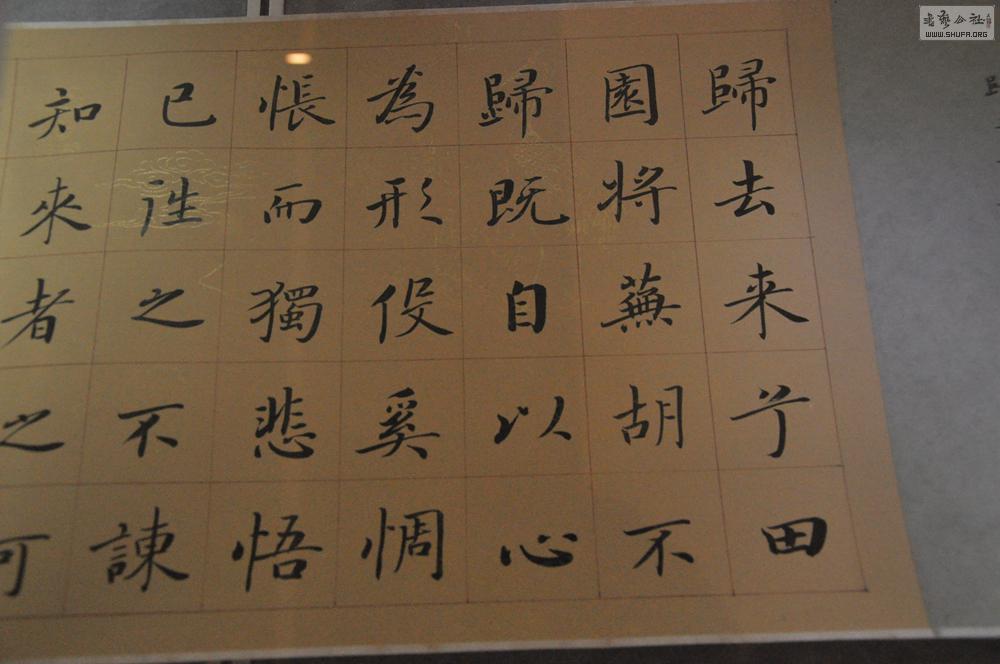 歸去来兮田
園将蕪胡不
歸既自以心
為形役奚惆
悵而獨悲悟
已往之不諫
知來者之可
書藝公社
WWW.SHUFA.ORG